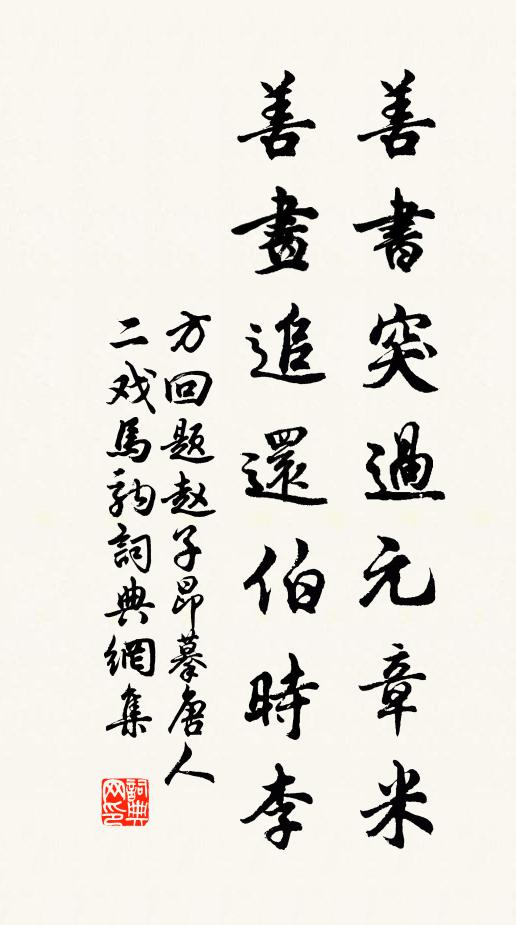 善書突過元章米
善畫追還伯時李
方回题赵子昂摹唐人
二戏馬驹詞典網集
詞典网印